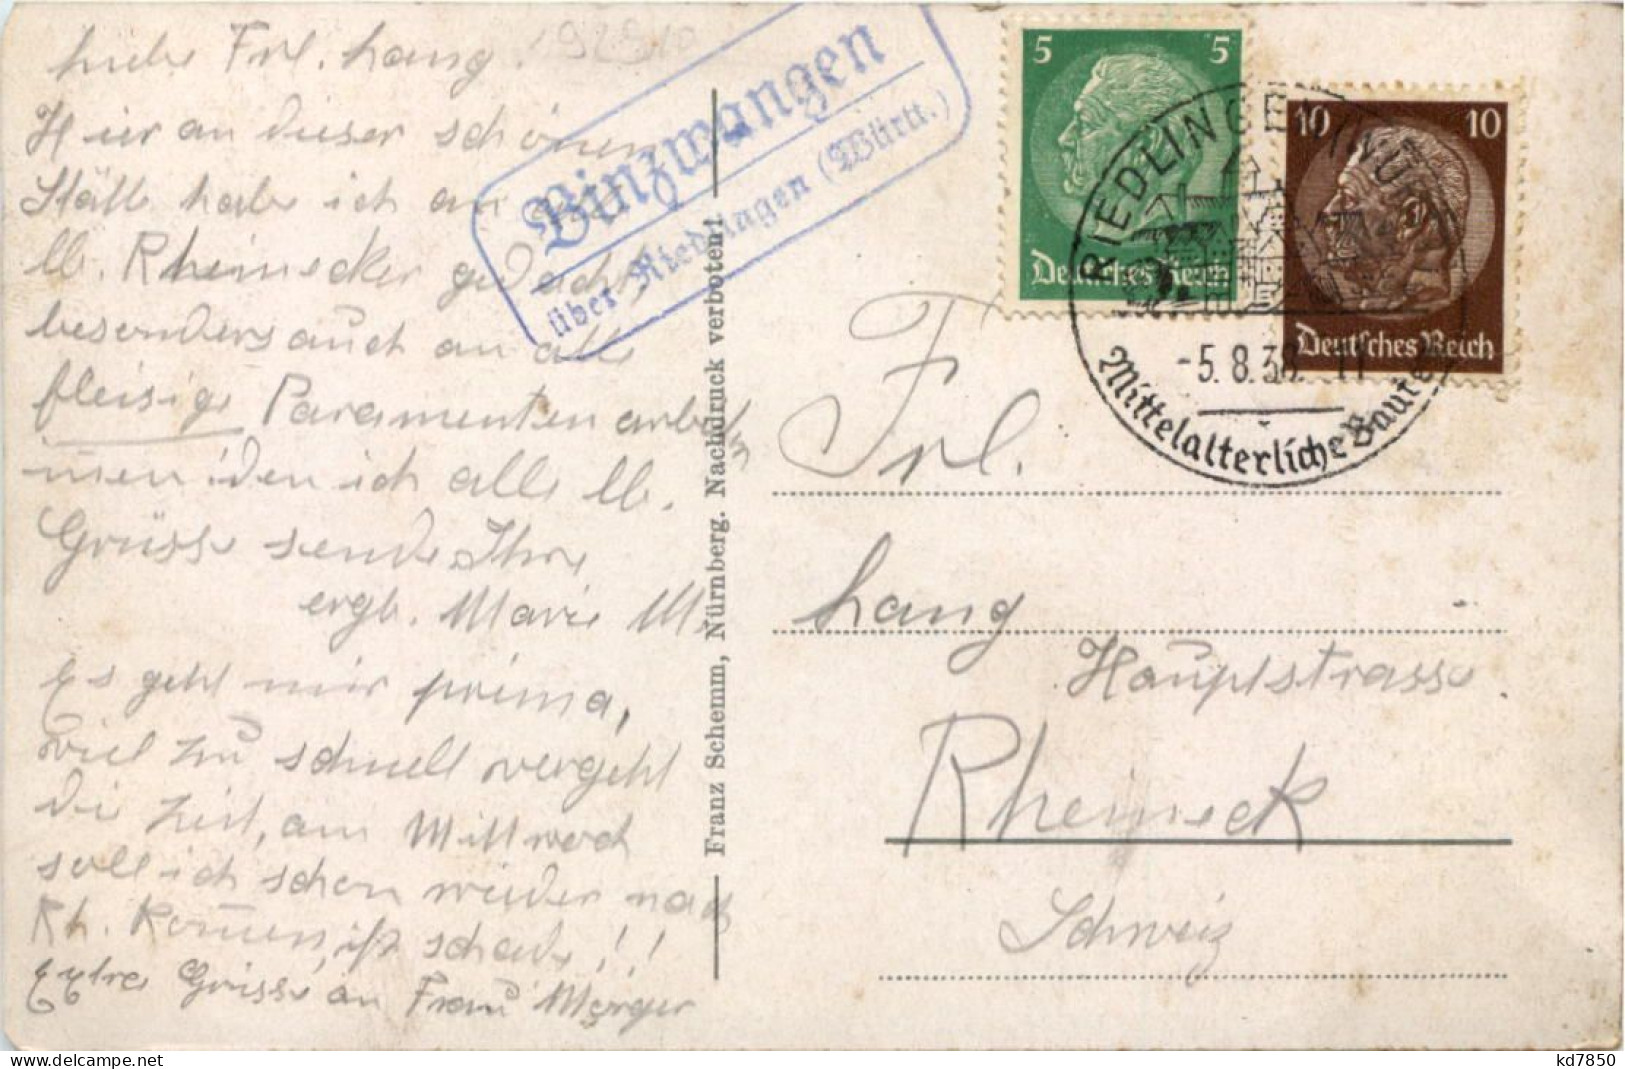 liebe Frl. Lang.
Hier an dieser schönen
Stätte habe ich an die
lb. Rheinecker gedacht
besonders auch an alle
fleisige Paramentenarbei
ich alle lb.
Grüsse sende Ihre
ergb. Marie M.
Es geht mir prima,
viel zu schnell vergeht
die Zeit, am Mittwoch
soll ich schon wieder nach
Rh. kommen, ist schade!!
Extra Grüsse an Frau Merger
Binzwangen
über Riedlingen (Württ.)
Franz Schemm, Nürnberg. Nachdruck verboten!
5 5
Deutsches Reich
10 10
Deutsches Reich
RIEDLINGEN (WÜRTT)
-5.8.38. 11
Mittelalterliche Bauten
Frl.
Lang
Hauptstrasse
Rheineck
Schweiz
kd7850